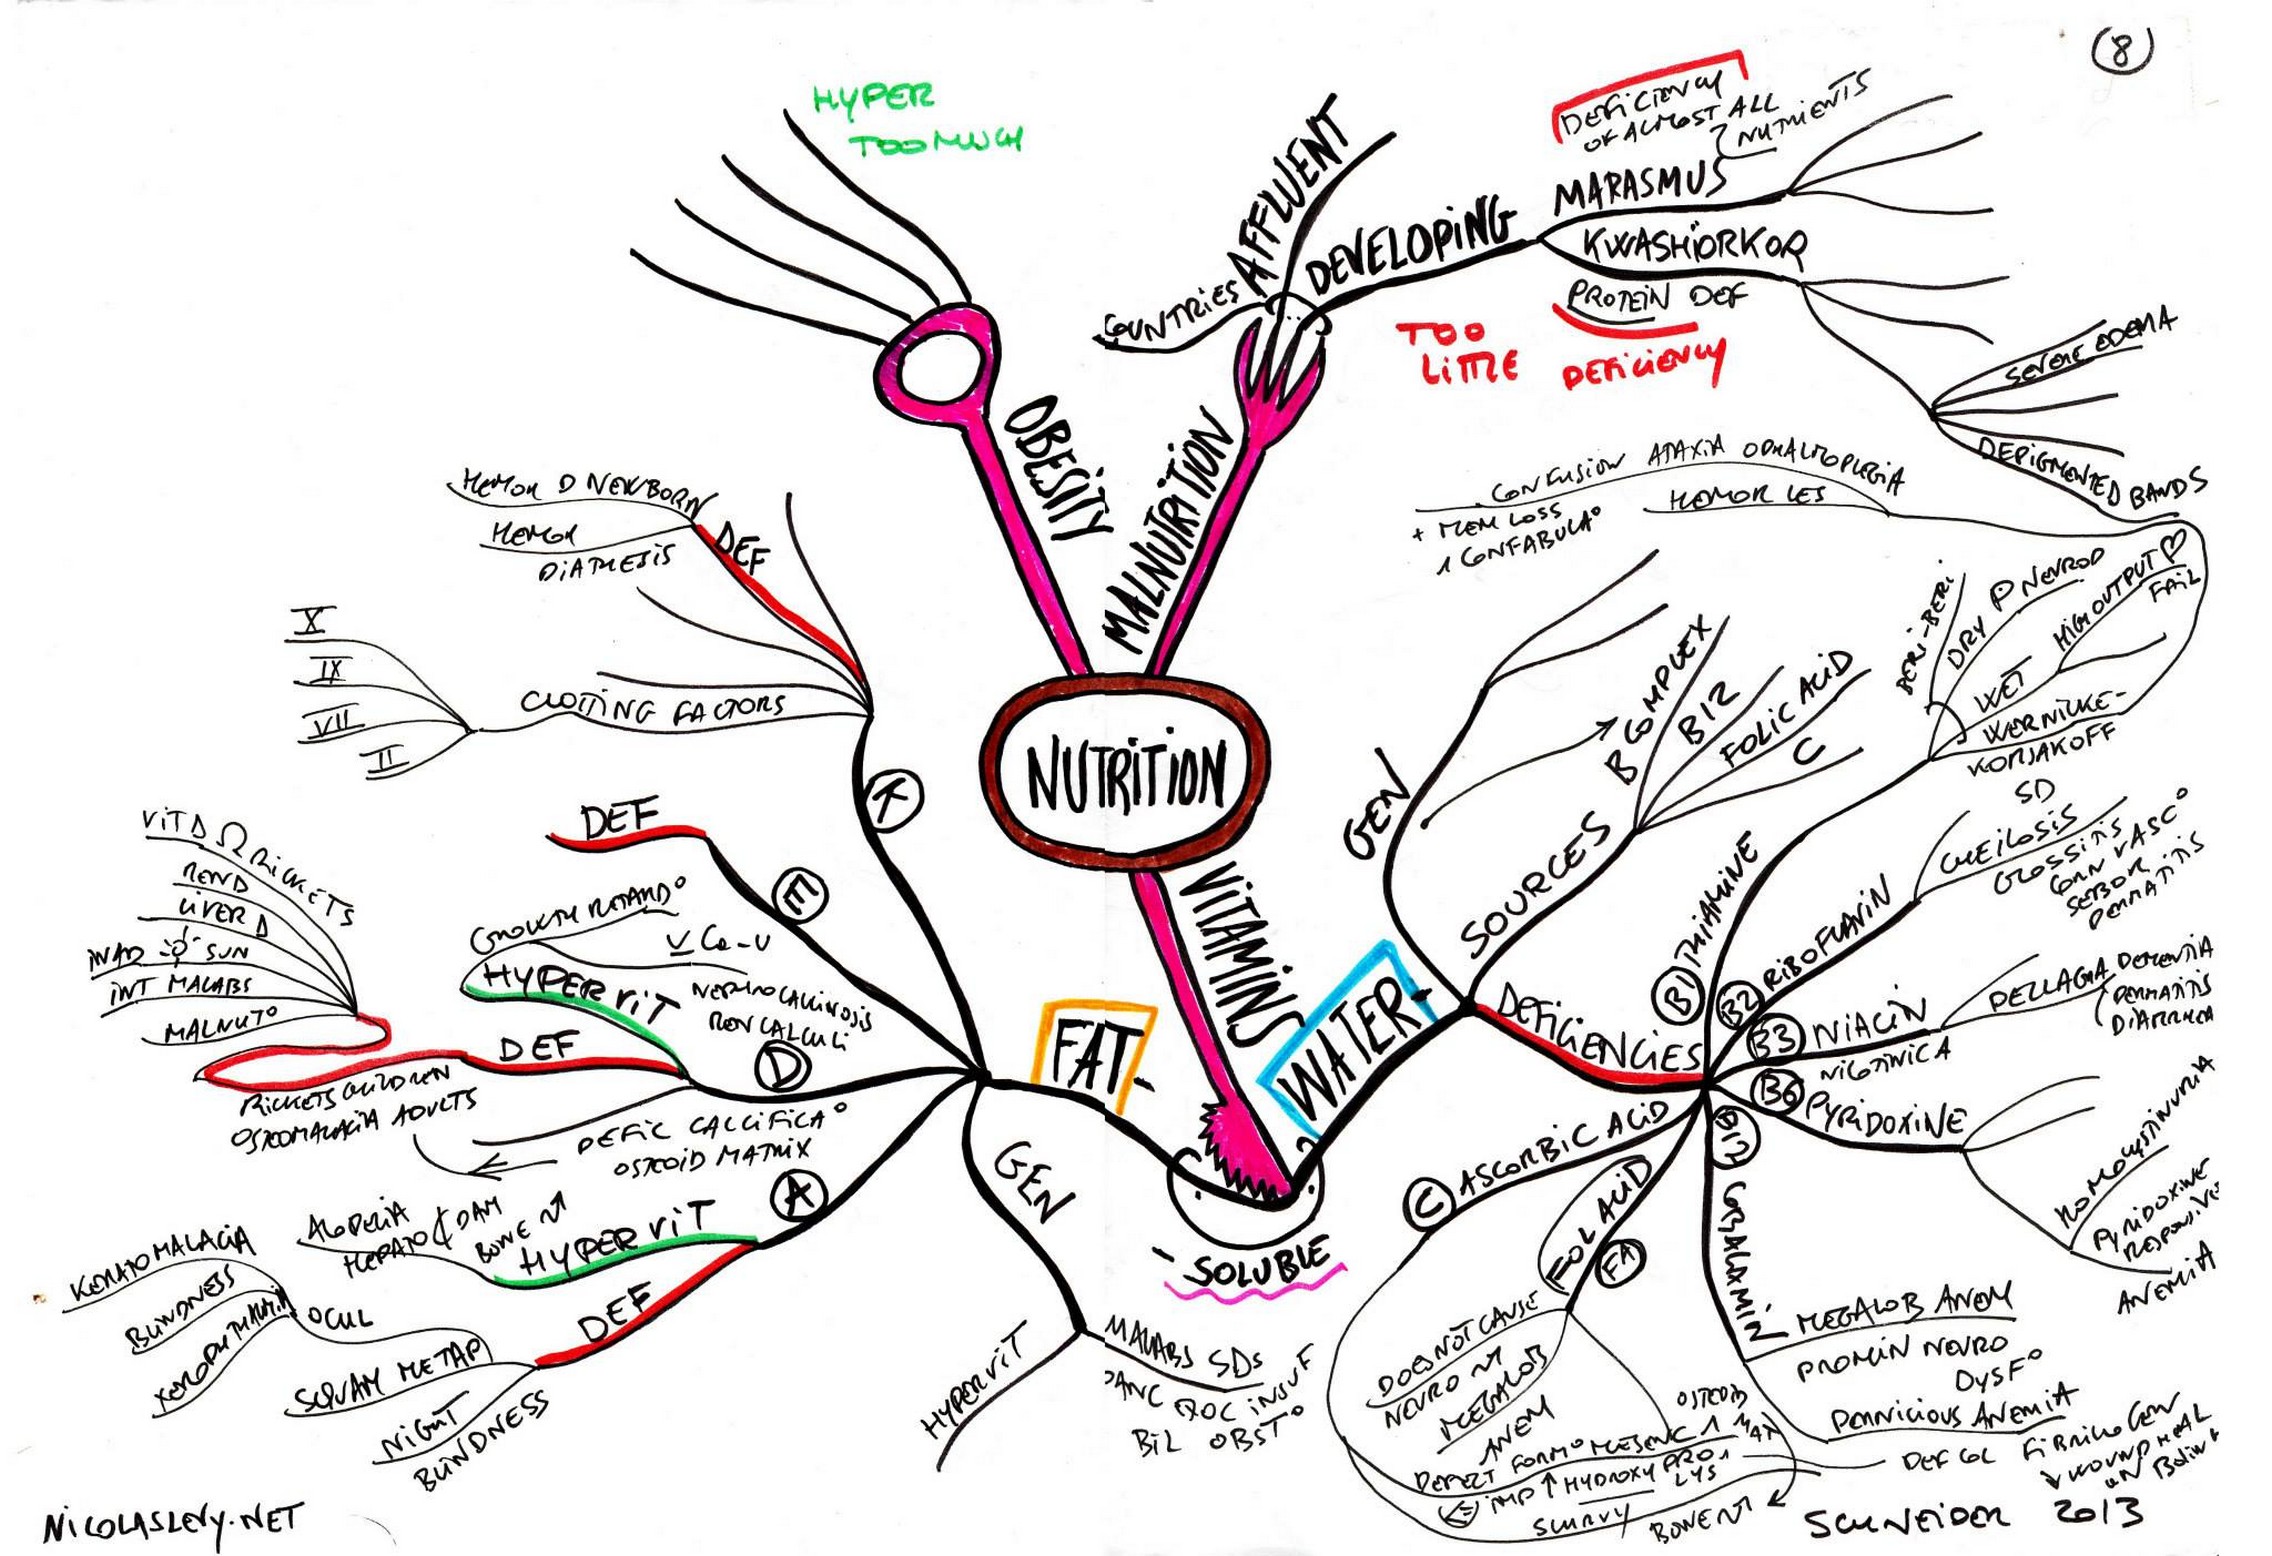 (8)
HYPER
TOO MUCH
OBESITY
COUNTRIES
AFFLUENT
DEVELOPING
MALNUTRITION
DEFICIENCY
OF ALMOST ALL
NUTRIENTS
MARASMUS
KWASHIORKOR
PROTEIN DEF
TOO
LITTLE
DEFICIENCY
SEVERE EDEMA
DEPIGMENTED BANDS
NUTRITION
VITAMINS
FAT-
WATER-
-SOLUBLE
K
DEF
HEMOR D NEWBORN
HEMOR
DIATHESIS
CLOTTING FACTORS
X
IX
VII
II
E
DEF
D
HYPERVIT
GROWTH RETARD°
NEPHROCALCINOSIS
REN CALCULI
DEF
RICKETS CHILDREN
OSTEOMALACIA ADULTS
VIT D
RICKETS
REN D
LIVER D
INAD SUN
INT MALABS
MALNUT°
DEFIC CALCIFICA°
OSTEOID MATRIX
A
HYPERVIT
ALOPECIA
HEPATO DAM
BONE
DEF
OCUL
KERATOMALACIA
BLINDNESS
XEROPHTHALMIA
SQUAM METAP
NIGHT
BLINDNESS
GEN
HYPERVIT
MALABS SDs
PANC EXOC INSUF
BIL OBST°
GEN
SOURCES
B COMPLEX
B12
FOLIC ACID
C
DEFICIENCIES
B1 THIAMINE
BERI-BERI
DRY P NEUROP
WET
HIGH OUTPUT ♡
FAIL
WERNICKE-
KORSAKOFF
SD
CONFUSION ATAXIA OPHALMOPLEGIA
+ MEM LOSS
CONFABULA°
HEMOR LES
B2 RIBOFLAVIN
CHEILOSIS
GLOSSITIS
CORN VASC°
SEBOR
DERMATITIS
B3 NIACIN
NICOTINIC A
PELLAGRA
DEMENTIA
DERMATITIS
DIARRHEA
B6 PYRIDOXINE
HOMOCYSTINURIA
PYRIDOXINE
RESPONSIVE
ANEMIA
B12 COBALAMIN
MEGALOB ANEM
NEURO
DYSF°
PERNICIOUS ANEMIA
FA
FOL ACID
DOES NOT CAUSE
NEURO
MEGALOB
ANEM
C ASCORBIC ACID
DEFECT FORM° MESENC
OSTEOID
IMP HYDROXY PRO
LYS
SCURVY
BONE
DEF COL
FIBRILLOGEN
WOUND HEAL
NICOLASLEVY.NET
SCHNEIDER 2013